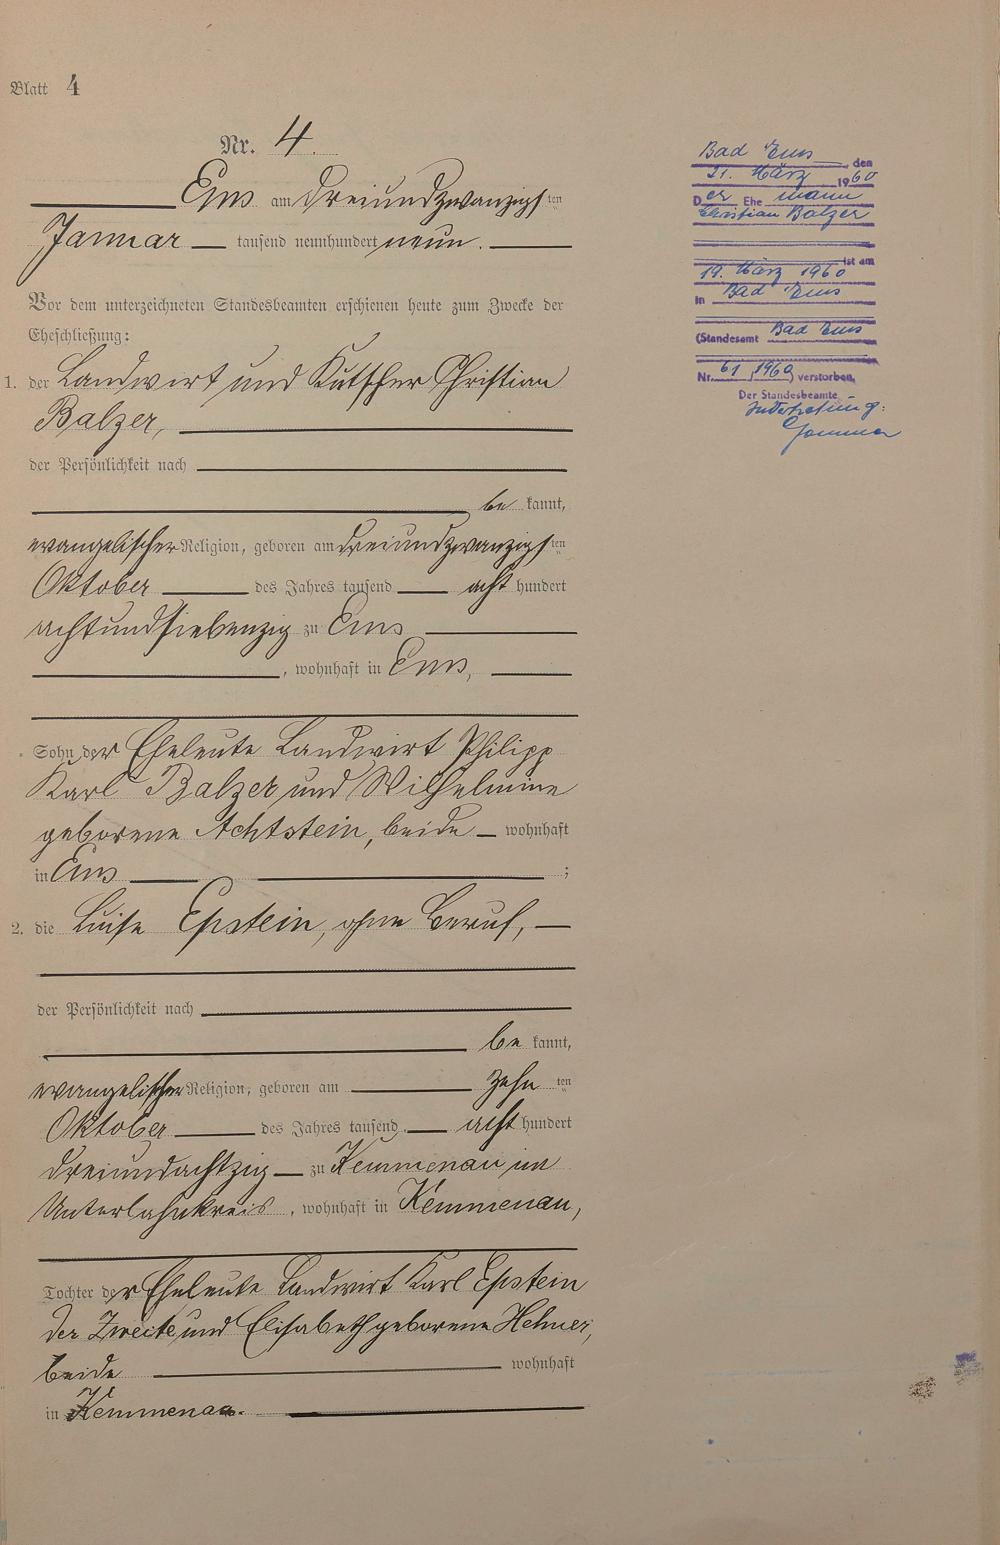 Blatt 4
Nr. 4.
Ems am dreiundzwanzigsten
Januar tausend neunhundert neun.
Vor dem unterzeichneten Standesbeamten erschienen heute zum Zwecke der
Eheschließung:
1. der Landwirt und Kutscher Christian
Balzer,
der Persönlichkeit nach
bekannt,
evangelischer Religion, geboren am dreiundzwanzigsten
Oktober des Jahres tausend acht hundert
achtundsiebenzig zu Ems
, wohnhaft in Ems,
Sohn der Eheleute Landwirt Philipp
Karl Balzer und Wilhelmine
geborene Achtstein, beide wohnhaft
in Ems ;
2. die Luise Epstein, ohne Beruf,
der Persönlichkeit nach
bekannt,
evangelischer Religion, geboren am zehnten
Oktober des Jahres tausend acht hundert
dreiundachtzig zu Kemmenau im
Unterlahnkreis, wohnhaft in Kemmenau,
Tochter der Eheleute Landwirt Karl Epstein
der Zweite und Elisabeth geborene
beide wohnhaft
in Kemmenau.
Bad Ems, den
21. März 1960
Der Ehemann
Christian Balzer
ist am
19. März 1960
in Bad Ems
(Standesamt Bad Ems
Nr. 61/1960) verstorben.
Der Standesbeamte
In Vertretung: